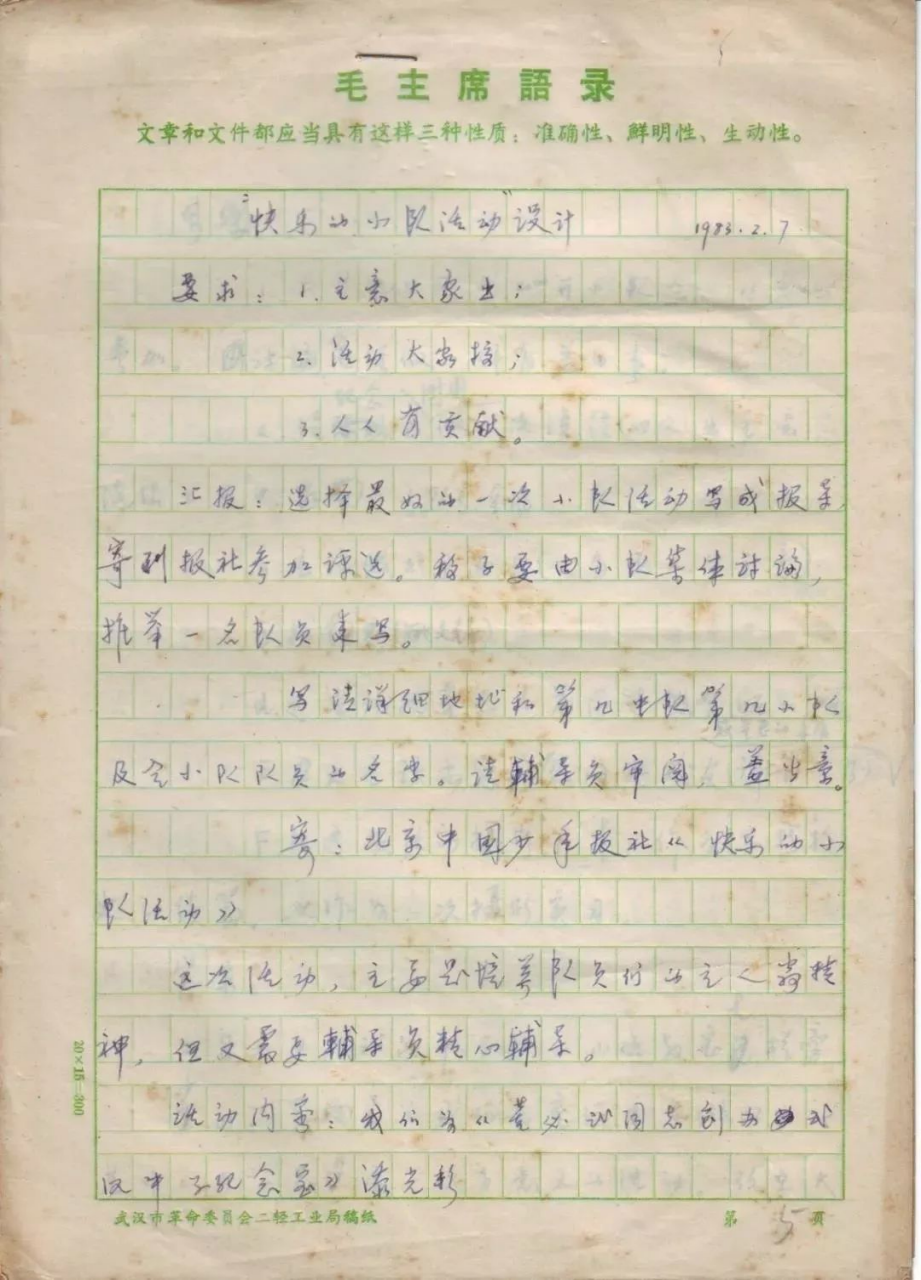 毛主席語录
文章和文件都应当具有这样三种性质：准确性、鲜明性、生动性。
"快乐的小队活动"设计 1983.2.7
要求：1.主意大家出；
2.活动大家搞；
3.人人有贡献。
汇报：选择最好的一次小队活动写成报导，
寄到报社参加评选。稿子要由小队集体讨论，
推举一名队员来写。
写清详细地址和第几中队第几小队
及全小队队员的名字。请輔导员审阅，盖公章。
寄：北京中国少年报社《快乐的小
队活动》
这次活动，主要是培养队员们的主人翁精
神，但又需要輔导员精心輔导。
活动内容：我们为《董必武同志创办武
汉中学纪念室》添光彩
20×15=300
武汉市革命委员会二轻工业局稿纸
第 5 頁